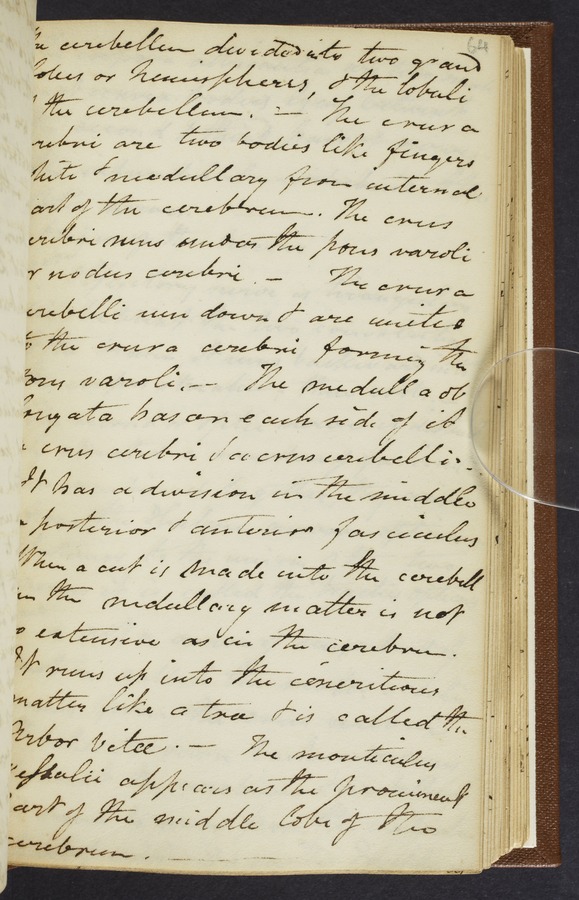 64
the cerebellum divided into two grand
lobes or hemispheres, & the lobuli
of the cerebellum. — The crura
cerebri are two bodies like fingers
white & medullary from internal
part of the cerebrum. The crus
cerebri runs under the pons varoli
or nodus cerebri — The crura
cerebelli run down & are united
to the crura cerebri forming the
pons varoli. — The medulla ob
longata has on each side of it
a crus cerebri & a crus cerebelli. -
It has a division in the middle
a posterior & anterior fasciculus
When a cut is made into the cerebell
um the medullary matter is not
so extensive as in the cerebrum.
It runs up into the cineritious
matter like a tree & is called the
Arbor vitæ. — The monticulus
appears as the prominent
part of the middle lobe of the
cerebrum. —